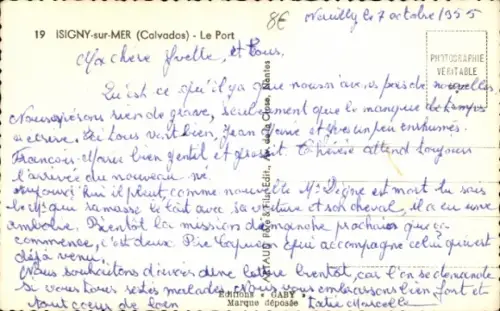 8€
Neuilly le 7 octobre 1955
19 ISIGNY-sur-MER (Calvados) - Le Port
Ma chère Yvette, et tous,
PHOTOGRAPHIE
VÉRITABLE
Qu'est ce qu'il y a que nous n'avons pas de nouvelles,
Nous espérons rien de grave, seulement que le manque de temps
à écrire. Ici tous vont bien, Jean Pierre et Yves un peu enrhumés.
François-Marie bien gentil et grossit. Thérèse attend toujours
l'arrivée du nouveau-né.
Aujourd'hui il pleut, comme nouvelle Mr Digne est mort tu sais
le Mr qui ramasse le lait avec sa voiture et son cheval, il a eu une
embolie. Bientôt la mission dimanche prochain que ça
commence, c'est deux Père Capucins qui accompagne celui qui est
déjà venu.
Nous souhaitons d'avoir une lettre bientôt, car l'on se demande
si vous tous malades. Nous vous embrassons bien fort et
tout coeur de loin
Tatie Marcelle
Editions "GABY"
Marque déposée
Père & Fils, Edit., de la Close, Nantes